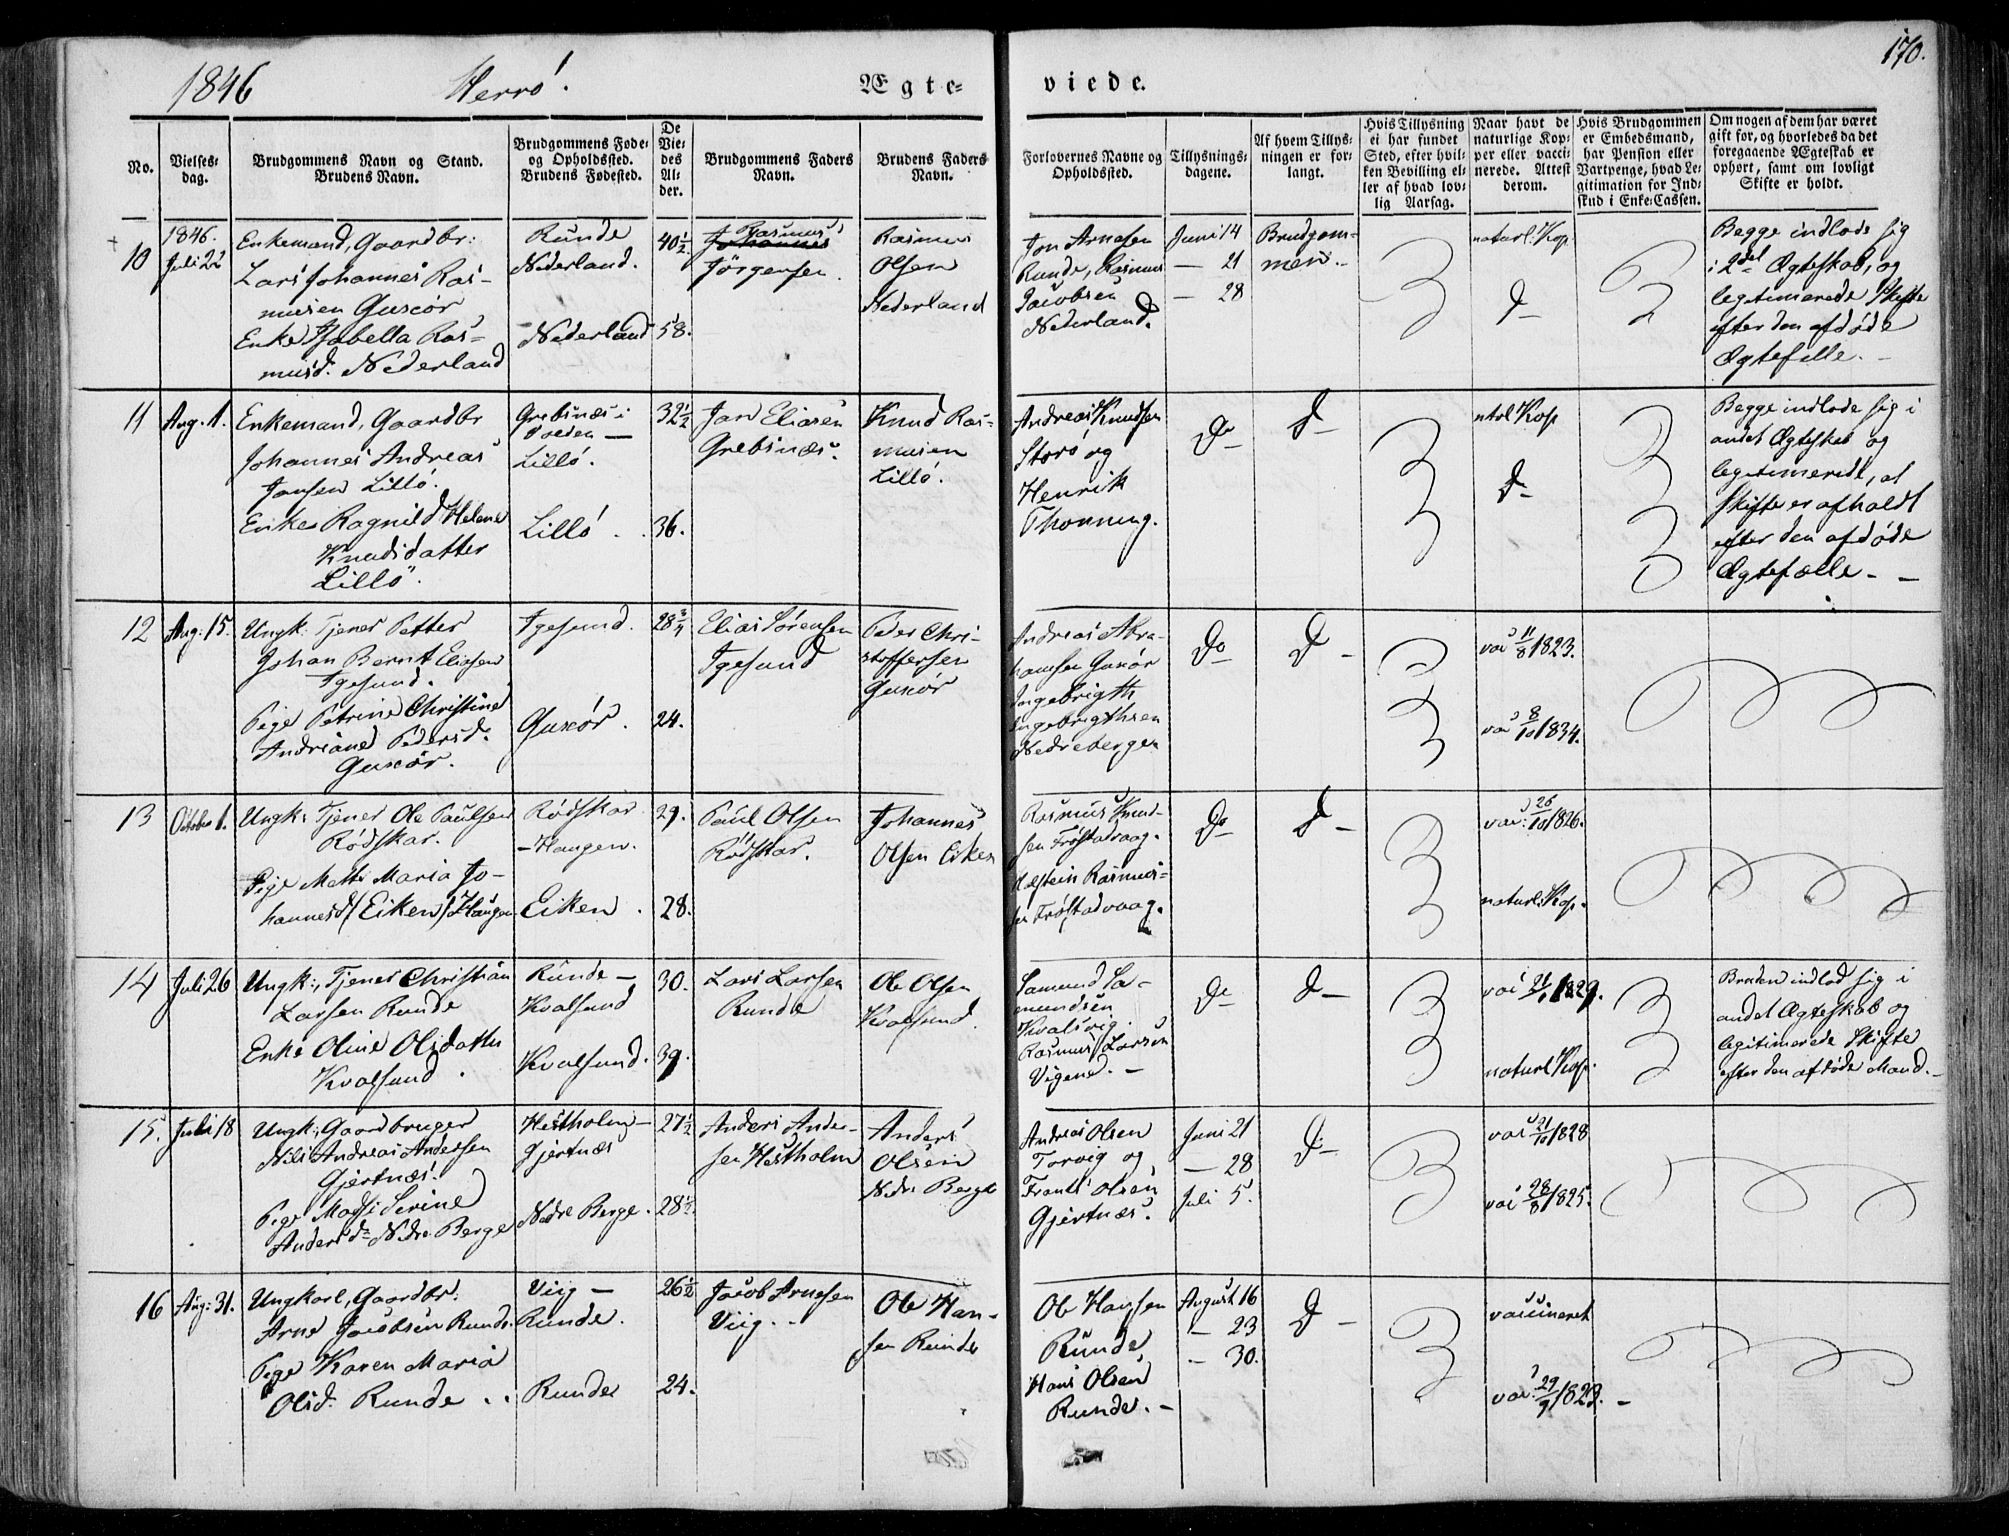 1846 Herrö. Ægte- viede. 170.
No.
Vielses-
dag.
Brudgommens Navn og Stand.
Brudens Navn.
Brudgommens Føde-
og Opholdssted.
Brudens Fødested.
De
Vie-
des
Al-
der.
Brudgommens Faders
Navn.
Brudens Faders
Navn.
Forlovernes Navne og
Opholdssted.
Tillysnings-
dagene.
Af hvem Tillys-
ningen er for-
langt.
Hvis Tillysning
ei har fundet
Sted, efter hvil-
ken Bevilling el-
ler af hvad lov-
lig Aarsag.
Naar havt de
naturlige Kop-
per eller vacci-
nerede. Attest
derom.
Hvis Brudgommen
er Embedsmand,
har Pension eller
Vartpenge, hvad Le-
gitimation for Ind-
skud i Enke-Cassen.
Om nogen af dem har været
gift før, og hvorledes da det
foregaaende Ægteskab er
ophørt, samt om lovligt
Skifte er holdt.
10
1846.
Juli 22
Enkemand, Gaardbr:
Lars Johannes Ras-
musen Guscör
Enke Isabella Ras-
musd. Nederland
Runde
Nederland.
Nederland
40 1/2
58.
Rasmus
Johannes
Jörgensen.
Rasmus
Olsen
Nederland
Jon Arnesen
Runde, Rasmus
Jacobsen
Nederland.
Juni 14
— 21
— 28
Brudgom-
men.
naturl. Kop
do
Begge indlode sig
i 2det Ægteskab, og
legitimerede Skifte
efter den afdøde
Ægtefelle. —
11
Aug. 1.
Enkemand, Gaardbr
Johannes Andreas
Jansen Lillö.
Enke Ragnild Helene
Knudsdatter
Lillö.
Grebsnæs i
Lillö.
Lillö.
32 1/2
36.
Jan Eliasen
Grebsnæs.
Knud Ras-
musen
Lillö.
Andreas Knudsen
Storö og
Henrik
Thonning.
Do
do
ntrl Kop
do
Begge indlode sig i
andet Ægteskab og
legitimeredt, at
Skifte er afholdt
efter den afdøde
Ægtefælle. —
12
Aug: 15.
Ungk: Tjener Petter
Johan Bernt Eliasen
Igesund.
Pige Petrine Christine
Andriane Pedersd.
Guscör.
Igesund.
Guscör.
28 3/4
24.
Elias Sörensen
Igesund
Peder Chri-
stoffersen
Guscör
Andreas Abra-
hamsen Guscör
Ingebrigth
Ingebrigthsen
Nedreberge
Do
do —
vac 11/8 1823.
vac 8/10 1834.
13
October 1.
Ungk: Tjener Ole Paulsen
Rödskar.
Pige Mette Maria Jo-
hannesd (Eiken) Haugen
Rödskar
— Haugen.
Eiken.
29.
28.
Paul Olsen
Rödskar.
Johannes
Olsen Eiken
Rasmus Knud-
sen Fröstadvaag.
Holstein Rasmus-
sen Fröstadvaag.
Do
do —
vac: 26/10 1826.
naturl. Kop.
14
Juli 26
Ungk:, Tjener Christian
Larsen Runde
Enke Oline Olsdatter
Kvalsund.
Runde —
Kvalsund
Kvalsund.
30.
39.
Lars Larsen
Runde
Ole Olsen
Kvalsund.
Samund Sa-
mundsen
Kvalsvig.
Rasmus Larsen
Vigene. —
Do
do —
1829.
naturl Kop.
Bruden indlod sig i
andet Ægteskab og
legitimerede Skifte
efter den afdöde Mand. —
15.
Juli 18
Ungk:, Gaardbruger
Nils Andreas Andersen
Gjertnæs.
Pige Serine
Andersd. Nedre Berge
Hestholm —
Gjertnæs
Nedre Berge.
27 1/2
28 1/2
Anders Ander-
sen Hestholm
Anders
Olsen
Nedre Berge
Andreas Olsen
Torvig og
Frants Olsen
Gjertnæs.
Juni 21
— 28
Juli 5.
do —
vac 21/10 1828
vac 28/8 1825.
16
Aug: 31.
Ungkarl, Gaardbr:
Arne Jacobsen Runde.
Pige Karen Maria
Olsd. Runde..
Viig —
Runde.
Runde
26 1/2
24.
Jacob Arnesen
Viig..
Ole Han-
sen Runde
Ole Hansen
Runde
Hans Olsen
Runde. —
August 16
— 23
— 30.
do —
vaccineret
vac. 29/9 1823. —